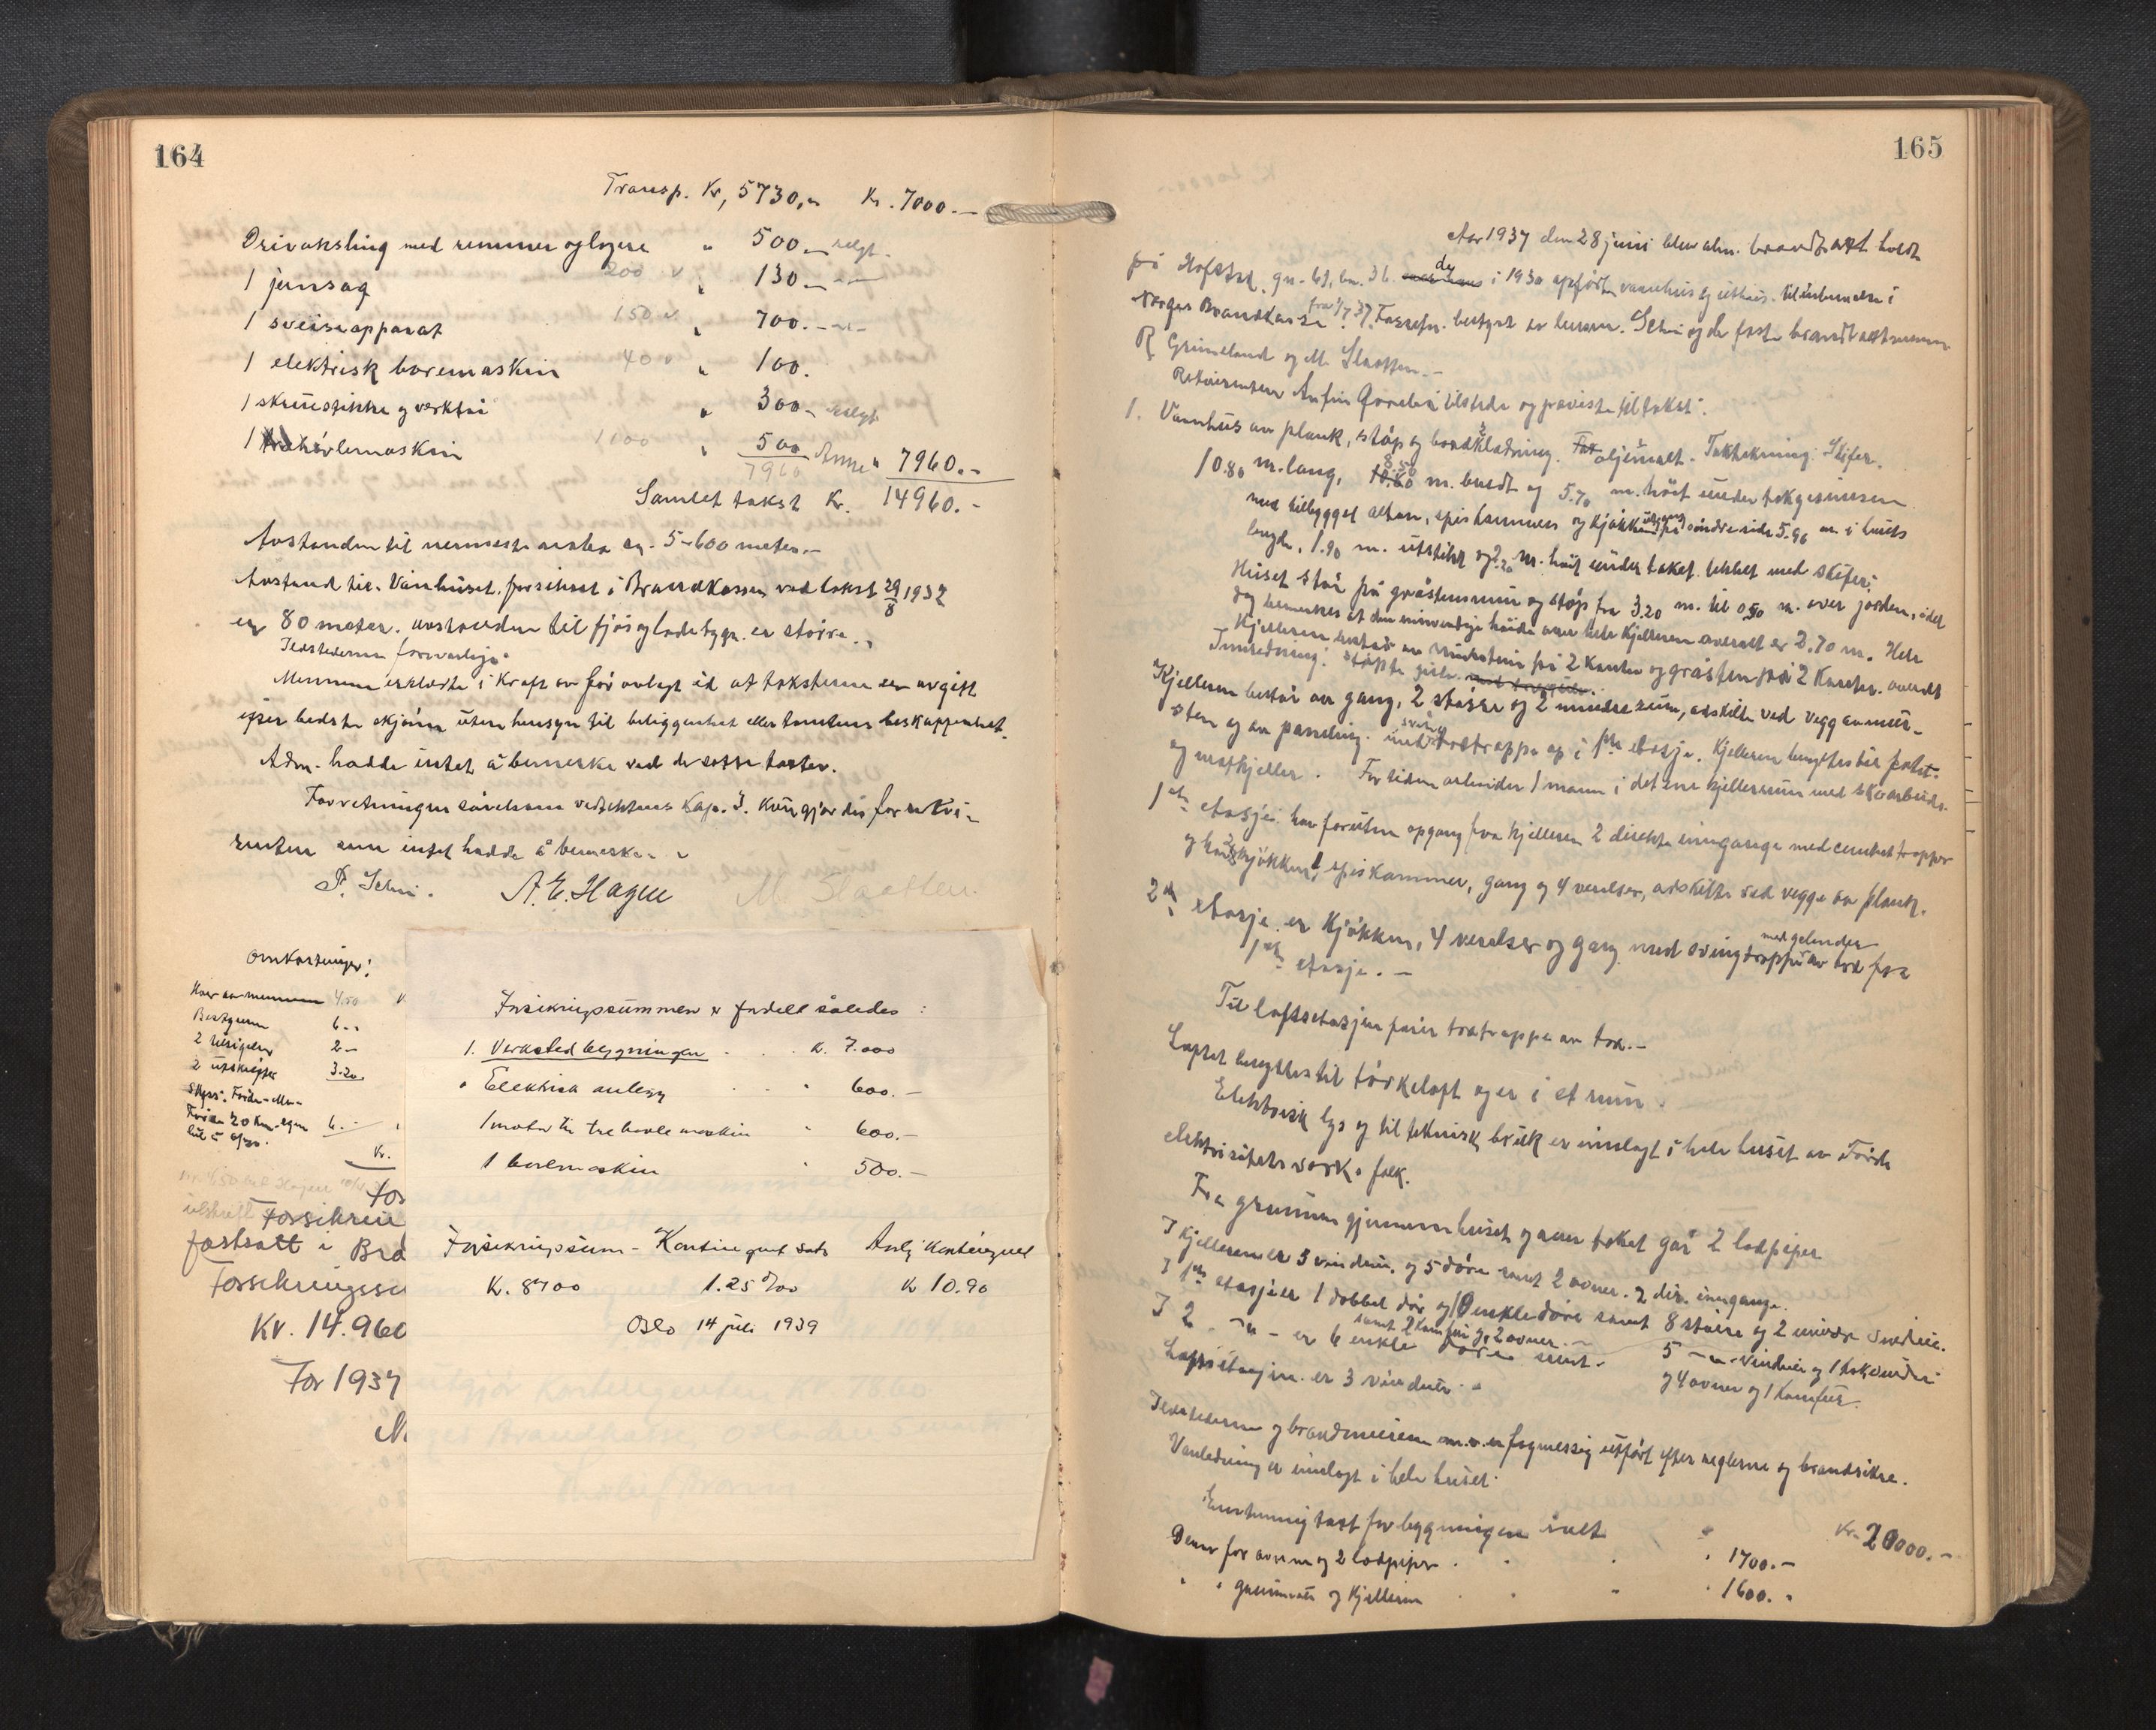 164
Transp. Kr, 5730,- Kr. 7000.-
Drivaksling med remmer og lagere " 500.- solgt.
1 jernsag 200 " 130.-
1 sveiseapparat 150 " 700.-
1 elektrisk boremaskin 400 " 100.
1 skruestikke og verktøi " 300.- solgt
1 trehøvlemaskin 1100 " 500 7960.-
7960
Samlet takst Kr. 14960.-
Avstanden til nermeste naboer 5-600 meter.-
Avstand til Vånhuset forsikret i Brandkassen ved takst 29/8 1932
er 80 meter. avstanden til fjøs og lade bygn. er større.
Ildstederne forsvarlige.
Mennene erklærte i kraft av før avlagt ed at taksterne er avgitt
efter bedste skjønn uten hensyn til beliggenhet eller tomtens beskaffenhet.
Adm. hadde intet å bemerke ved de satte takster.
Forretningen såvelsom vedtektens Kap. 3. kungjordes for rekvi-
renten som intet hadde å bemerke.
P. Schei. A. E. Hagen M. Slaatten
Omkostninger:
Hver av mennene 4.50
Bestyreren 6.-
2 2.-
2 utskrifter 3.20.
Skyss. Førde-
Førde 20 km. egen 6.-
bil
Kr.
For
Forsikrin
fastsatt i Bra
Forsikringssu
Kr. 14.960
For 1937
No
Forsikringssummen er fordelt således:
1. Verkstedbygningen . . . K. 7.000
" Elektrisk anlegg . . " 600.-
1 motor til trehøvlemaskin " 600.-
1 boremaskin " 500.-
Forsikringssum - Kontingent sats Årlig Kontingent
K. 8700 1.25 ‰ K 10.90
Oslo 14 juli 1939
165
Aar 1937 den 28 juni blev alm. brandtakst holdt
på Hofstad, gn. 61, bn. 36 de i 1930 opførte vaanhus og uthus til innlemmelse i
Norges Brandkasse fra 1/7 37. Forretn. bestyrt av lensm. Schei og de faste brandtakstmenn
R Grimeland og M. Slaatten.-
Rekvirenten Anfin tilstede og påviste til takst.
1. Vaanhus av plank, støp og bordklædning. oljemalt. Taktekning: Skifer.
10.80 m. lang, 8.50 m. bredt og 5.70 m. høit under takgesimsen
med tilbygget altan, spiskammer og kjøkkenutgang på søndre side 5.90 m. i husets
lengde, 1.90 m. utstikk og 2.20 m. høit under taket tekket med skifer.
Huset står på gråstensmur og støp fra 3.20 m. til 0.50 m. over jorden, idet
dog bemerkes at den innvendige høide over hele kjelleren overalt er 2.70 m. Hele
Kjelleren består av mursten på 2 kanter og gråsten på 2 kanter. overalt
Innredning: støpte gulv.
Kjelleren består av gang, 2 større og 2 mindre rum, adskilte ved vegg av mur-
sten og av paneling. med svingtretrappe op i 1ste etasje. Kjelleren benyttes til potet-
og matkjeller. For tiden arbeider 1 mann i det ene kjellerrum med skoarbeide.
1ste etasje: har foruten opgang fra kjelleren 2 direkte innganger med cementtrapper
og har kjøkken, 1 spiskammer, gang og 4 værelser, adskilte ved vegge av plank.
2en etasje er kjøkken, 4 værelser og gang med svingtrappe av tre med gelender fra
1ste etasje.-
Til loftsetasjen fører tretrappe av tre.-
Loftet benyttes til tørkeloft og er i et rum.
Elektrisk lys og til teknisk bruk er innlagt i hele huset av Førde
elektrisitetsverks folk.
Fra grunnen gjennem huset og over taket går 2 lodpiper
I kjelleren er 3 vinduer og 5 døre samt 2 ovner. 2 dir. innganger.
I 1ste etasje er 1 dobbel dør og 10 enkle døre samt 8 større og 2 mindre vinduer.
samt 2 komfur og 2 ovner.-
I 2 -"- er 6 enkle døre samt 5 -"- vinduer og 1 takvindu
og 4 ovner og 1 komfur.
Loftsetasjen er 3 vinduer.
Ildstederne og brandmurene m.v. er fagmessig utført efter reglerne og brandsikre.
Vanledning er innlagt i hele huset.
Enstemmig takst for bygningen i alt " Kr. 20000.-
Derav for ovnene og 2 lodpiper . . . 1700.-
" " grunnmur og kjelleren . . " . 1600.-